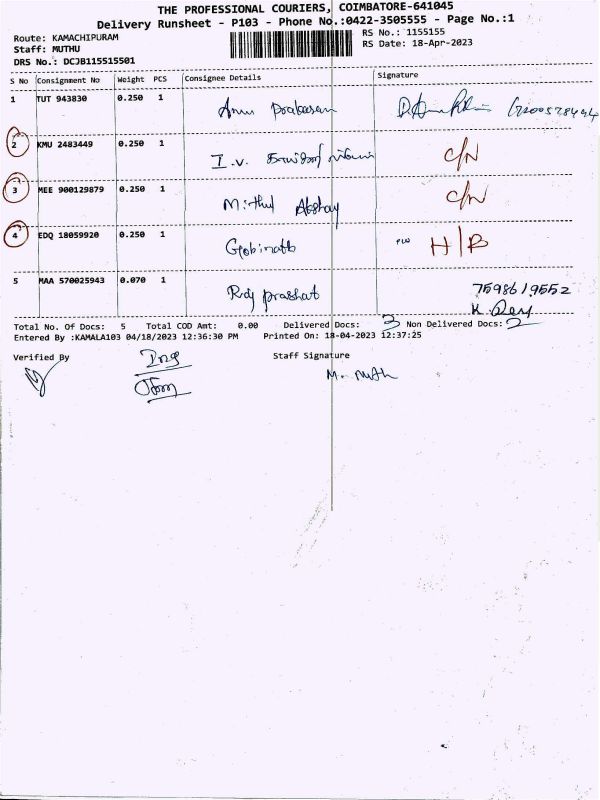 THE PROFESSIONAL COURIERS, COIMBATORE-641045
Delivery Runsheet - P103 - Phone No.:0422-3505555 - Page No.:1
Route: KAMACHIPURAM
RS No.: 1155155
Staff: MUTHU
RS Date: 18-Apr-2023
DRS No.: DCJB115515501
S No Consignment No Weight PCS Consignee Details Signature
1 TUT 943830 0.250 1 Anu Prakasan
2 KMU 2483449 0.250 1 I.v. C/N
3 MEE 900129879 0.250 1 Mithul Akshay C/N
4 EDQ 18059920 0.250 1 Gobinath H|B
5 MAA 570025943 0.070 1 Raj prashat 7598619552
K. Dev
Total No. Of Docs: 5 Total COD Amt: 0.00 Delivered Docs: 3 Non Delivered Docs: 2
Entered By :KAMALA103 04/18/2023 12:36:30 PM Printed On: 18-04-2023 12:37:25
Verified By Staff Signature
M. Muth